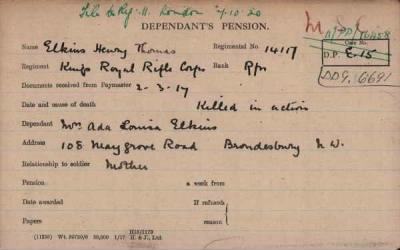 File to Reg. H. London 7.10.20
DEPENDANT'S PENSION.
M
Name Elkins Henry Thomas Regimental No. 14117
Case No.
D.P. E.15
Regiment Kings Royal Rifle Corps Rank Rfn
DD9. 6691
Documents received from Paymaster 2-3-17
Date and cause of death Killed in action
Dependant Mrs Ada Louisa Elkins
Address 108 Maygrove Road Brondesbury N.W.
Relationship to soldier Mother
Pension a week from
Date awarded If refused
Papers reason
(11230) Wt. 20,000 1/17 H. & J., Ltd.